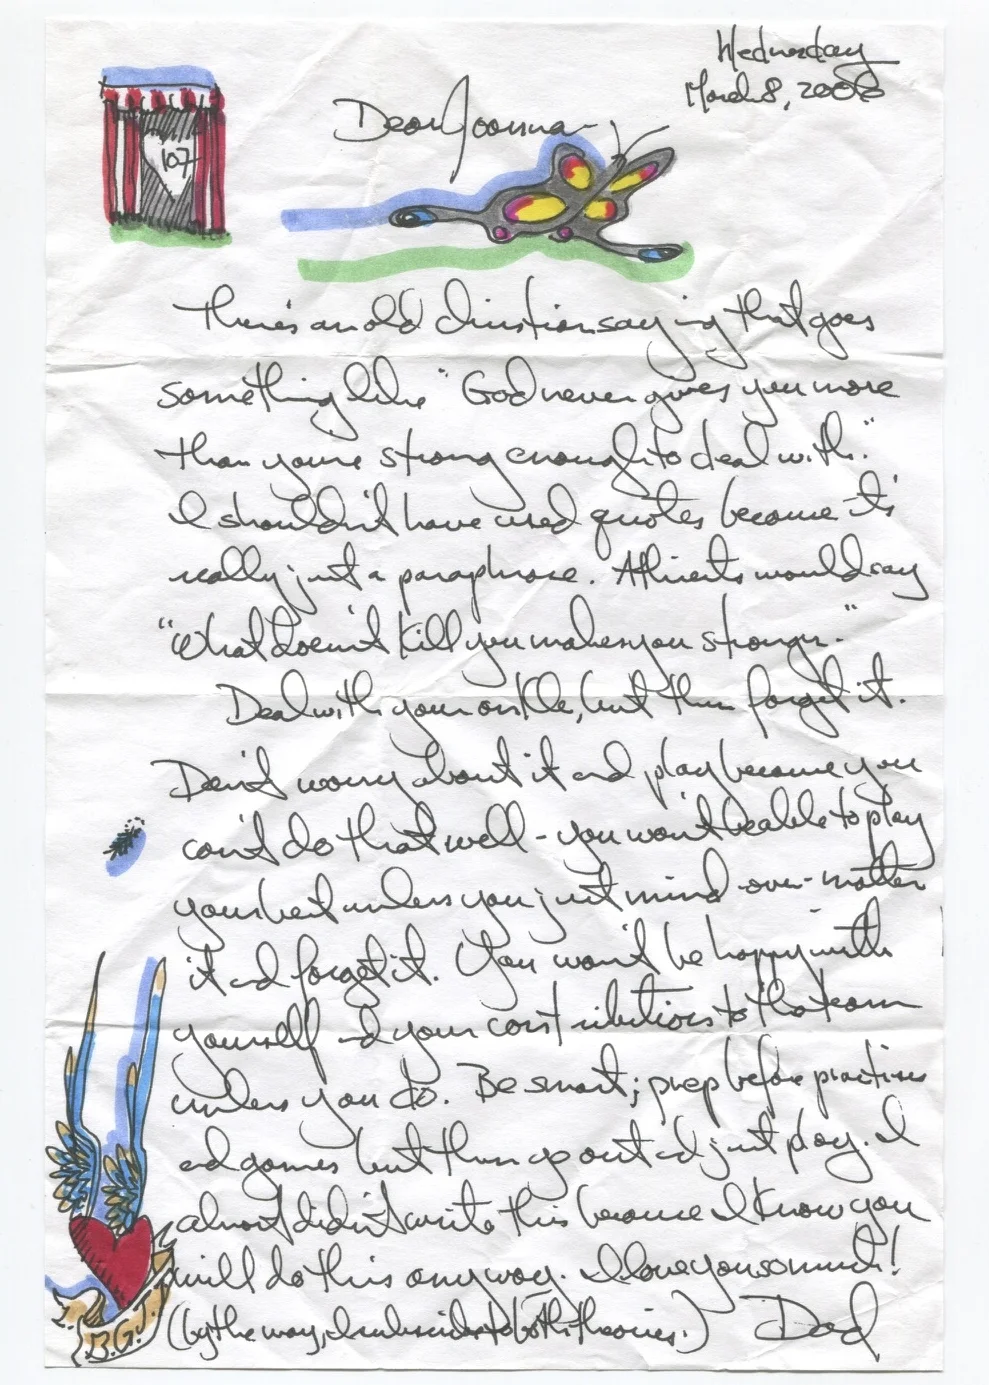 Wednesday
March 8, 2006
Dear Joanna-
107
There's an old christian saying that goes
something like "God never gives you more
than you're strong enough to deal with."
I shouldn't have used quotes because it's
really just a paraphrase. Athiests would say
"What doesn't kill you makes you stronger."
Deal with your ankle, but then forget it.
Don't worry about it and play because you
can't do that well - you won't be able to play
your best unless you just mind-over-matter
it and forget it. You won't be happy with
yourself and your contributions to the team
unless you do. Be smart; prep before practices
and games but then go out and just play. I
almost didn't write this because I know you
will do this anyway. I love you so much!
(by the way, I subscribe to both theories.) Dad
B.G.!